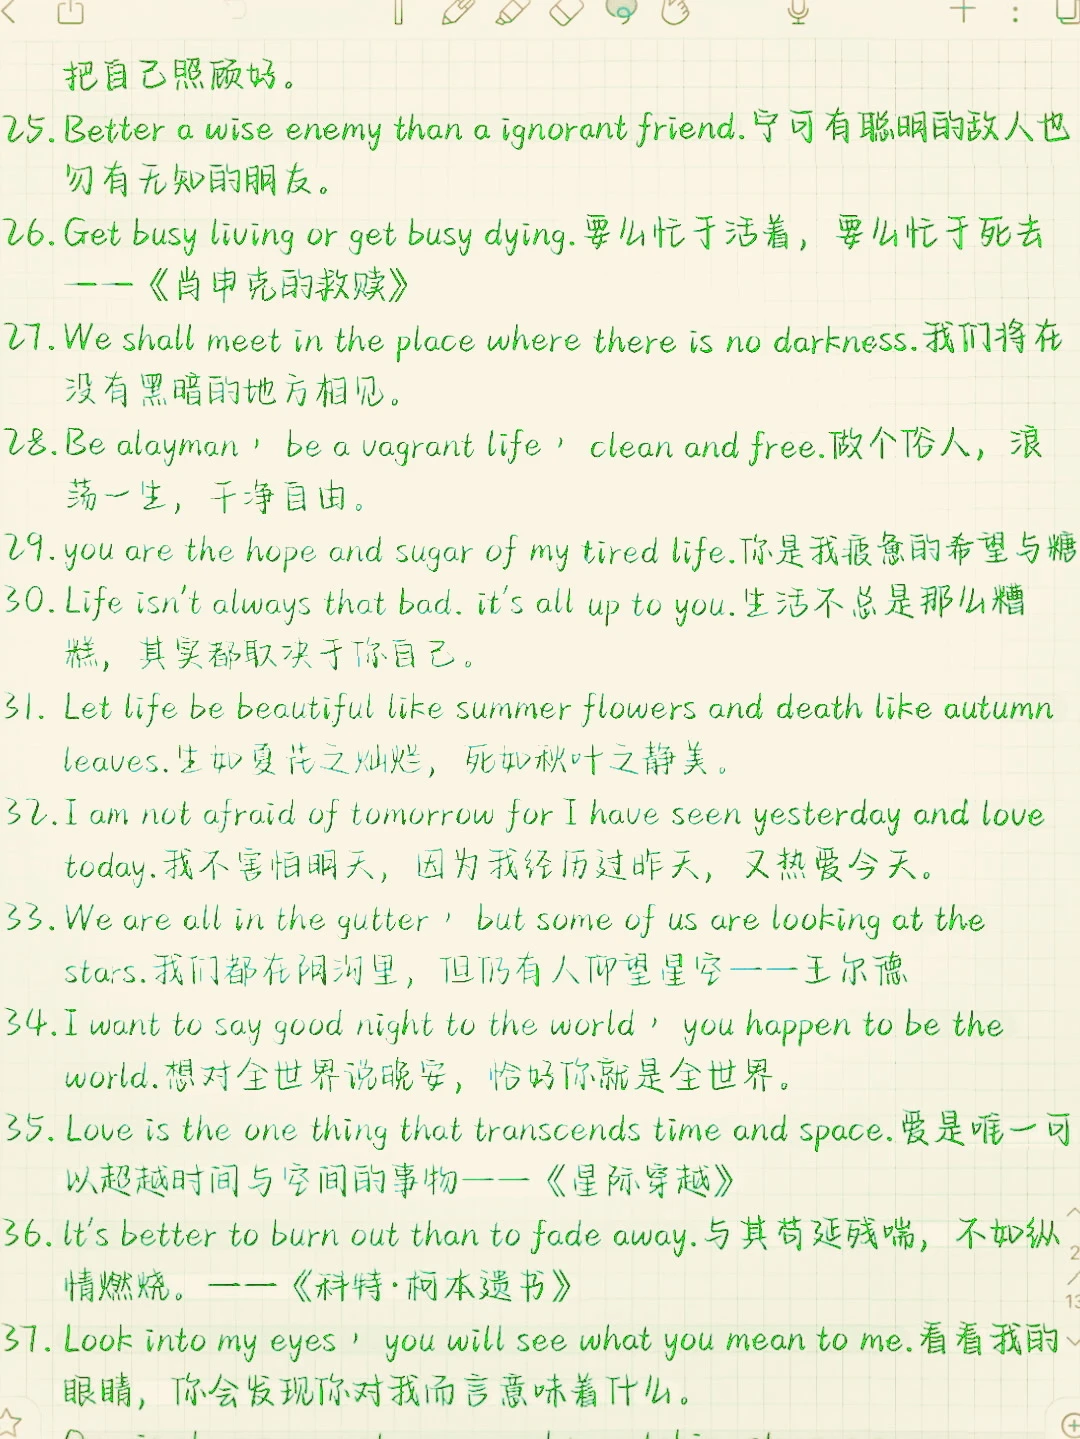 把自己照顾好。
25. Better a wise enemy than a ignorant friend.宁可有聪明的敌人也
勿有无知的朋友。
26. Get busy living or get busy dying.要么忙于活着，要么忙于死去
——《肖申克的救赎》
27. We shall meet in the place where there is no darkness.我们将在
没有黑暗的地方相见。
28. Be alayman，be a vagrant life，clean and free.做个俗人，浪
荡一生，干净自由。
29. you are the hope and sugar of my tired life.你是我疲惫的希望与糖
30. Life isn't always that bad. it's all up to you.生活不总是那么糟
糕，其实都取决于你自己。
31. Let life be beautiful like summer flowers and death like autumn
leaves.生如夏花之灿烂，死如秋叶之静美。
32. I am not afraid of tomorrow for I have seen yesterday and love
today.我不害怕明天，因为我经历过昨天，又热爱今天。
33. We are all in the gutter，but some of us are looking at the
stars.我们都在阴沟里，但仍有人仰望星空——王尔德
34. I want to say good night to the world，you happen to be the
world.想对全世界说晚安，恰好你就是全世界。
35. Love is the one thing that transcends time and space.爱是唯一可
以超越时间与空间的事物——《星际穿越》
36. It's better to burn out than to fade away.与其苟延残喘，不如纵
情燃烧。——《科特·柯本遗书》
2
/
13
37. Look into my eyes，you will see what you mean to me.看看我的
眼睛，你会发现你对我而言意味着什么。